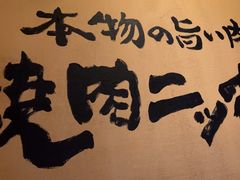 本物の旨い
焼肉ニッ